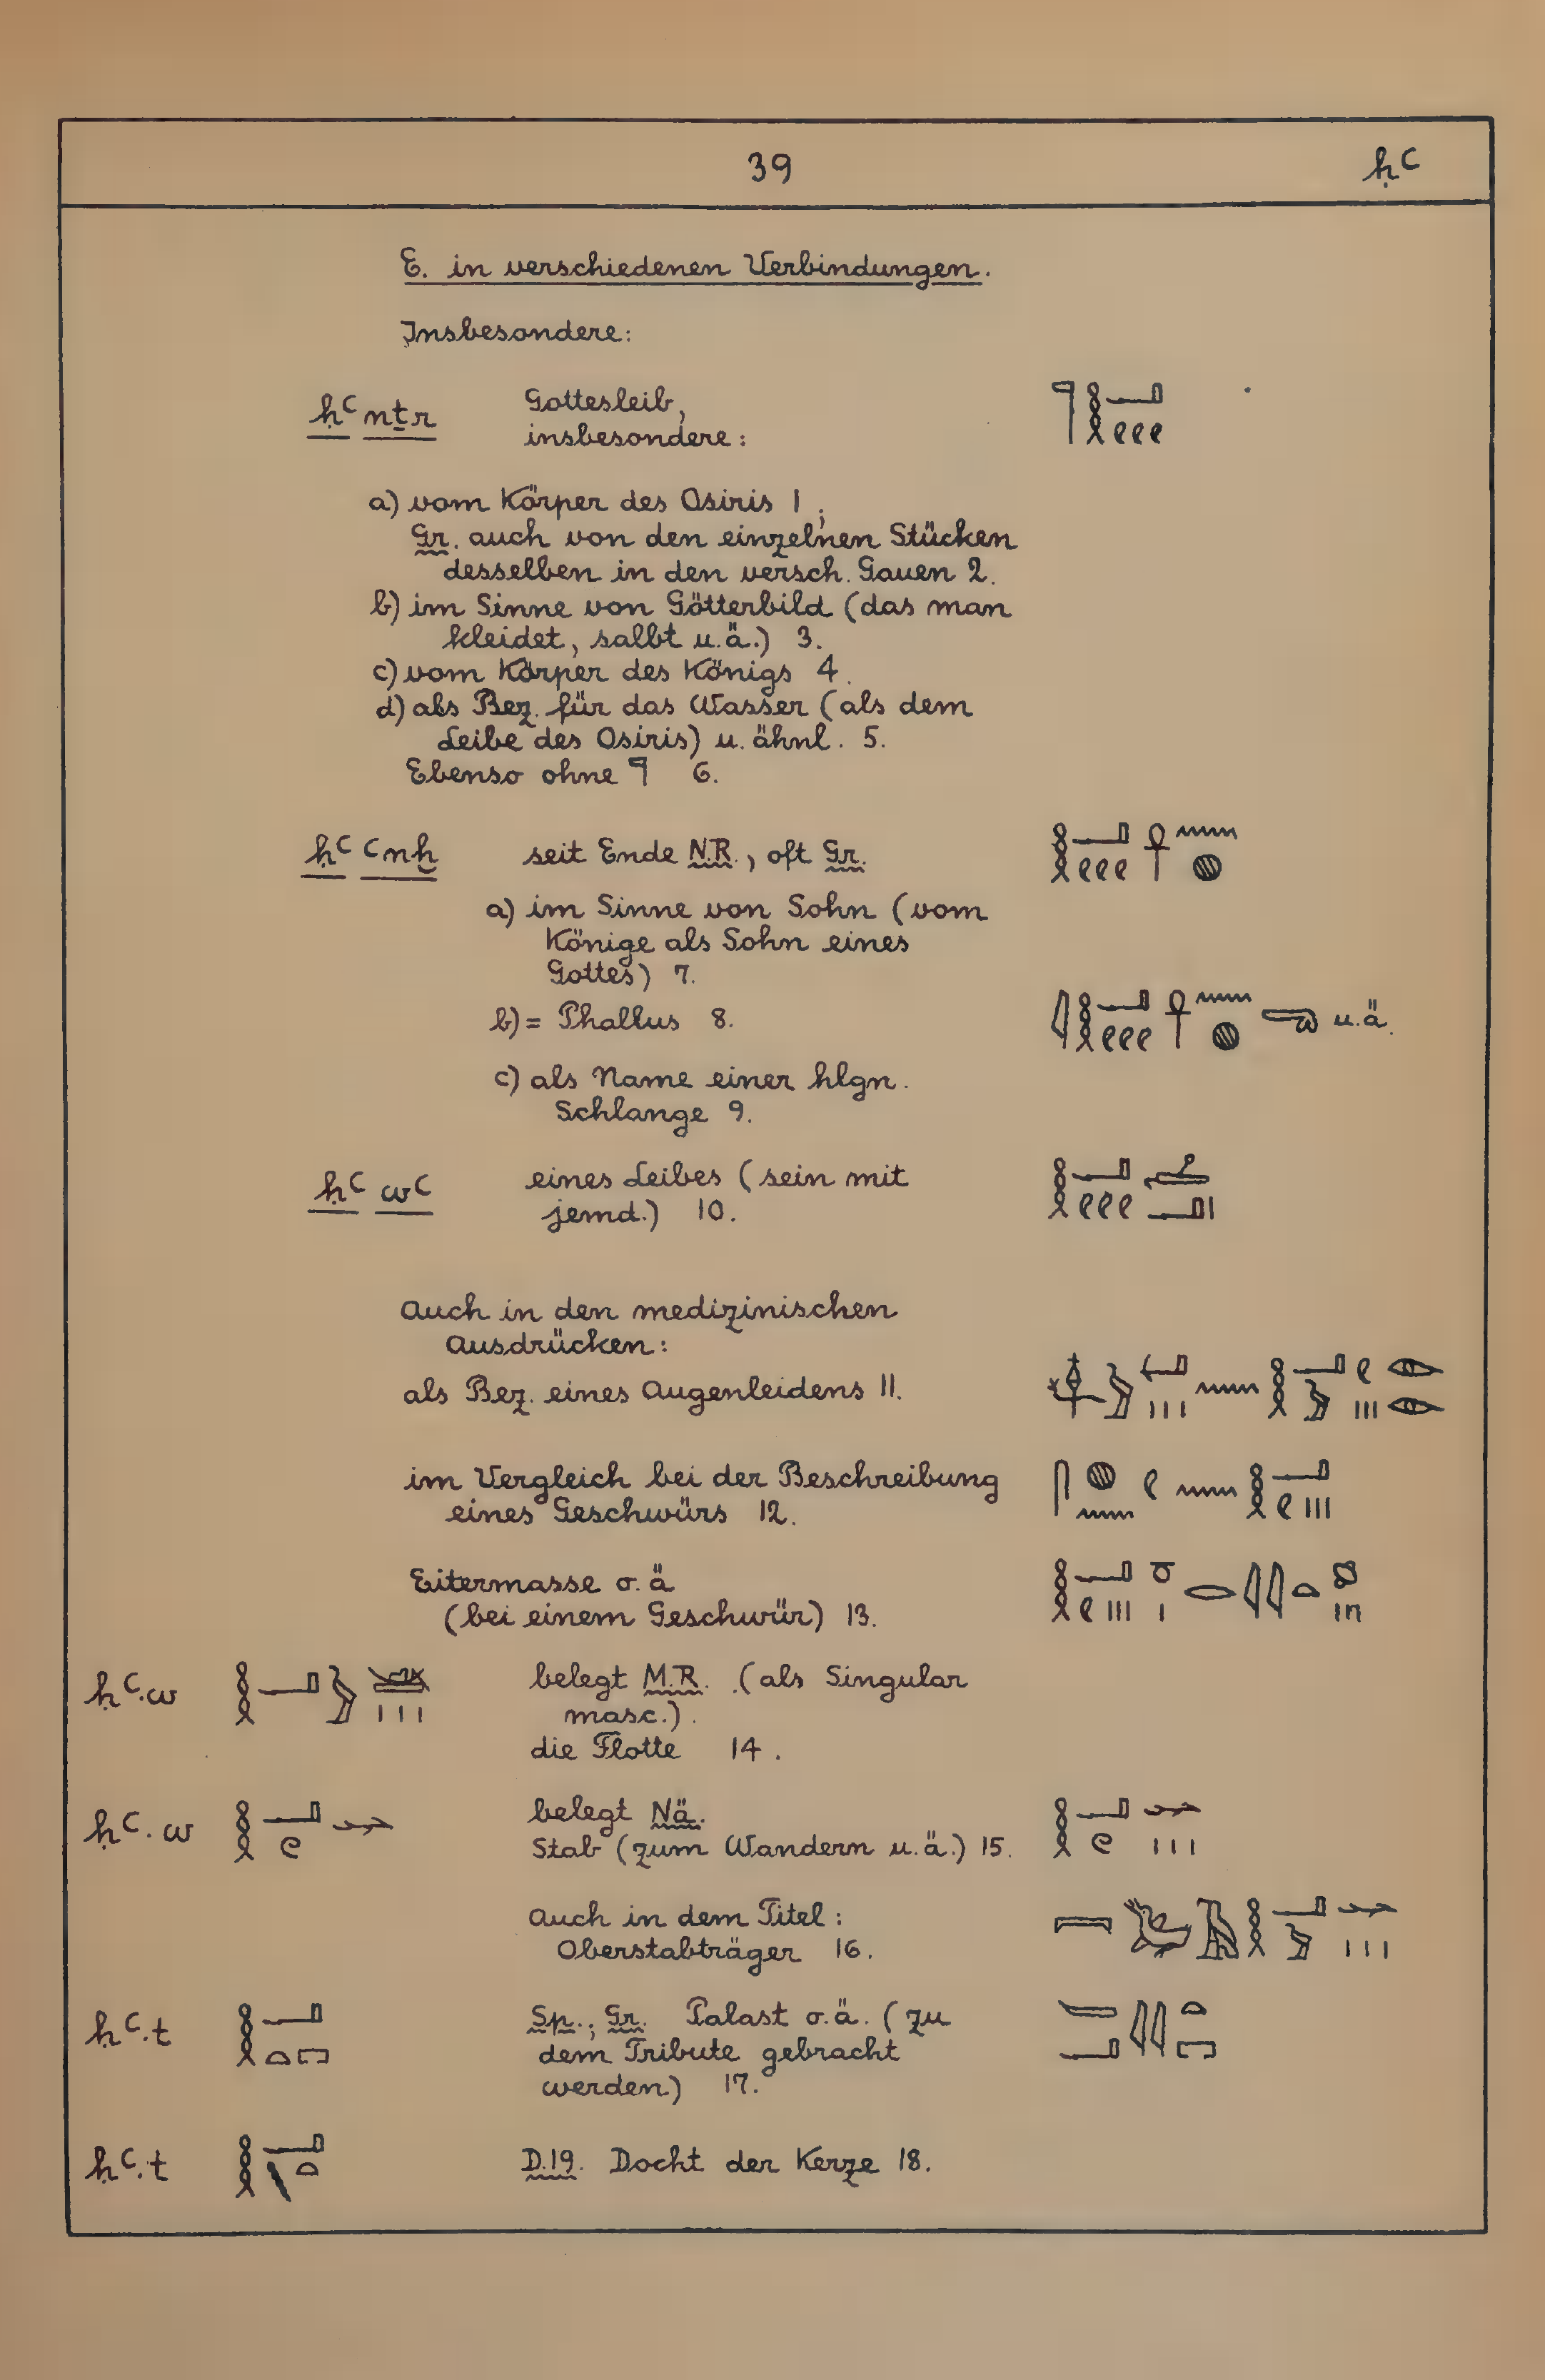 39 ḥꜥ
E. in verschiedenen Verbindungen.
Insbesondere:
ḥꜥ nṯr Gottesleib,
insbesondere:
a) vom Körper des Osiris 1;
Gr. auch von den einzelnen Stücken
desselben in den versch. Gauen 2.
b) im Sinne von Götterbild (das man
kleidet, salbt u.ä.) 3.
c) vom Körper des Königs 4.
d) als Bez. für das Wasser (als dem
Leibe des Osiris) u. ähnl. 5.
Ebenso ohne 𓊹 6.
ḥꜥ ꜥnḫ seit Ende N.R., oft Gr.
a) im Sinne von Sohn (vom
Könige als Sohn eines
Gottes) 7.
b) = Phallus 8. u.ä.
c) als Name einer hlgn.
Schlange 9.
ḥꜥ wꜥ eines Leibes (sein mit
jemd.) 10.
Auch in den medizinischen
Ausdrücken:
als Bez. eines Augenleidens 11.
im Vergleich bei der Beschreibung
eines Geschwürs 12.
Eitermasse o.ä
(bei einem Geschwür) 13.
ḥꜥ.w belegt M.R. (als Singular
masc.).
die Flotte 14.
ḥꜥ.w belegt Nä.
Stab (zum Wandern u.ä.) 15.
Auch in dem Titel:
Oberstabträger 16.
ḥꜥ.t Sp.; Gr. Palast o.ä. (zu
dem Tribute gebracht
werden) 17.
ḥꜥ.t D.19. Docht der Kerze 18.